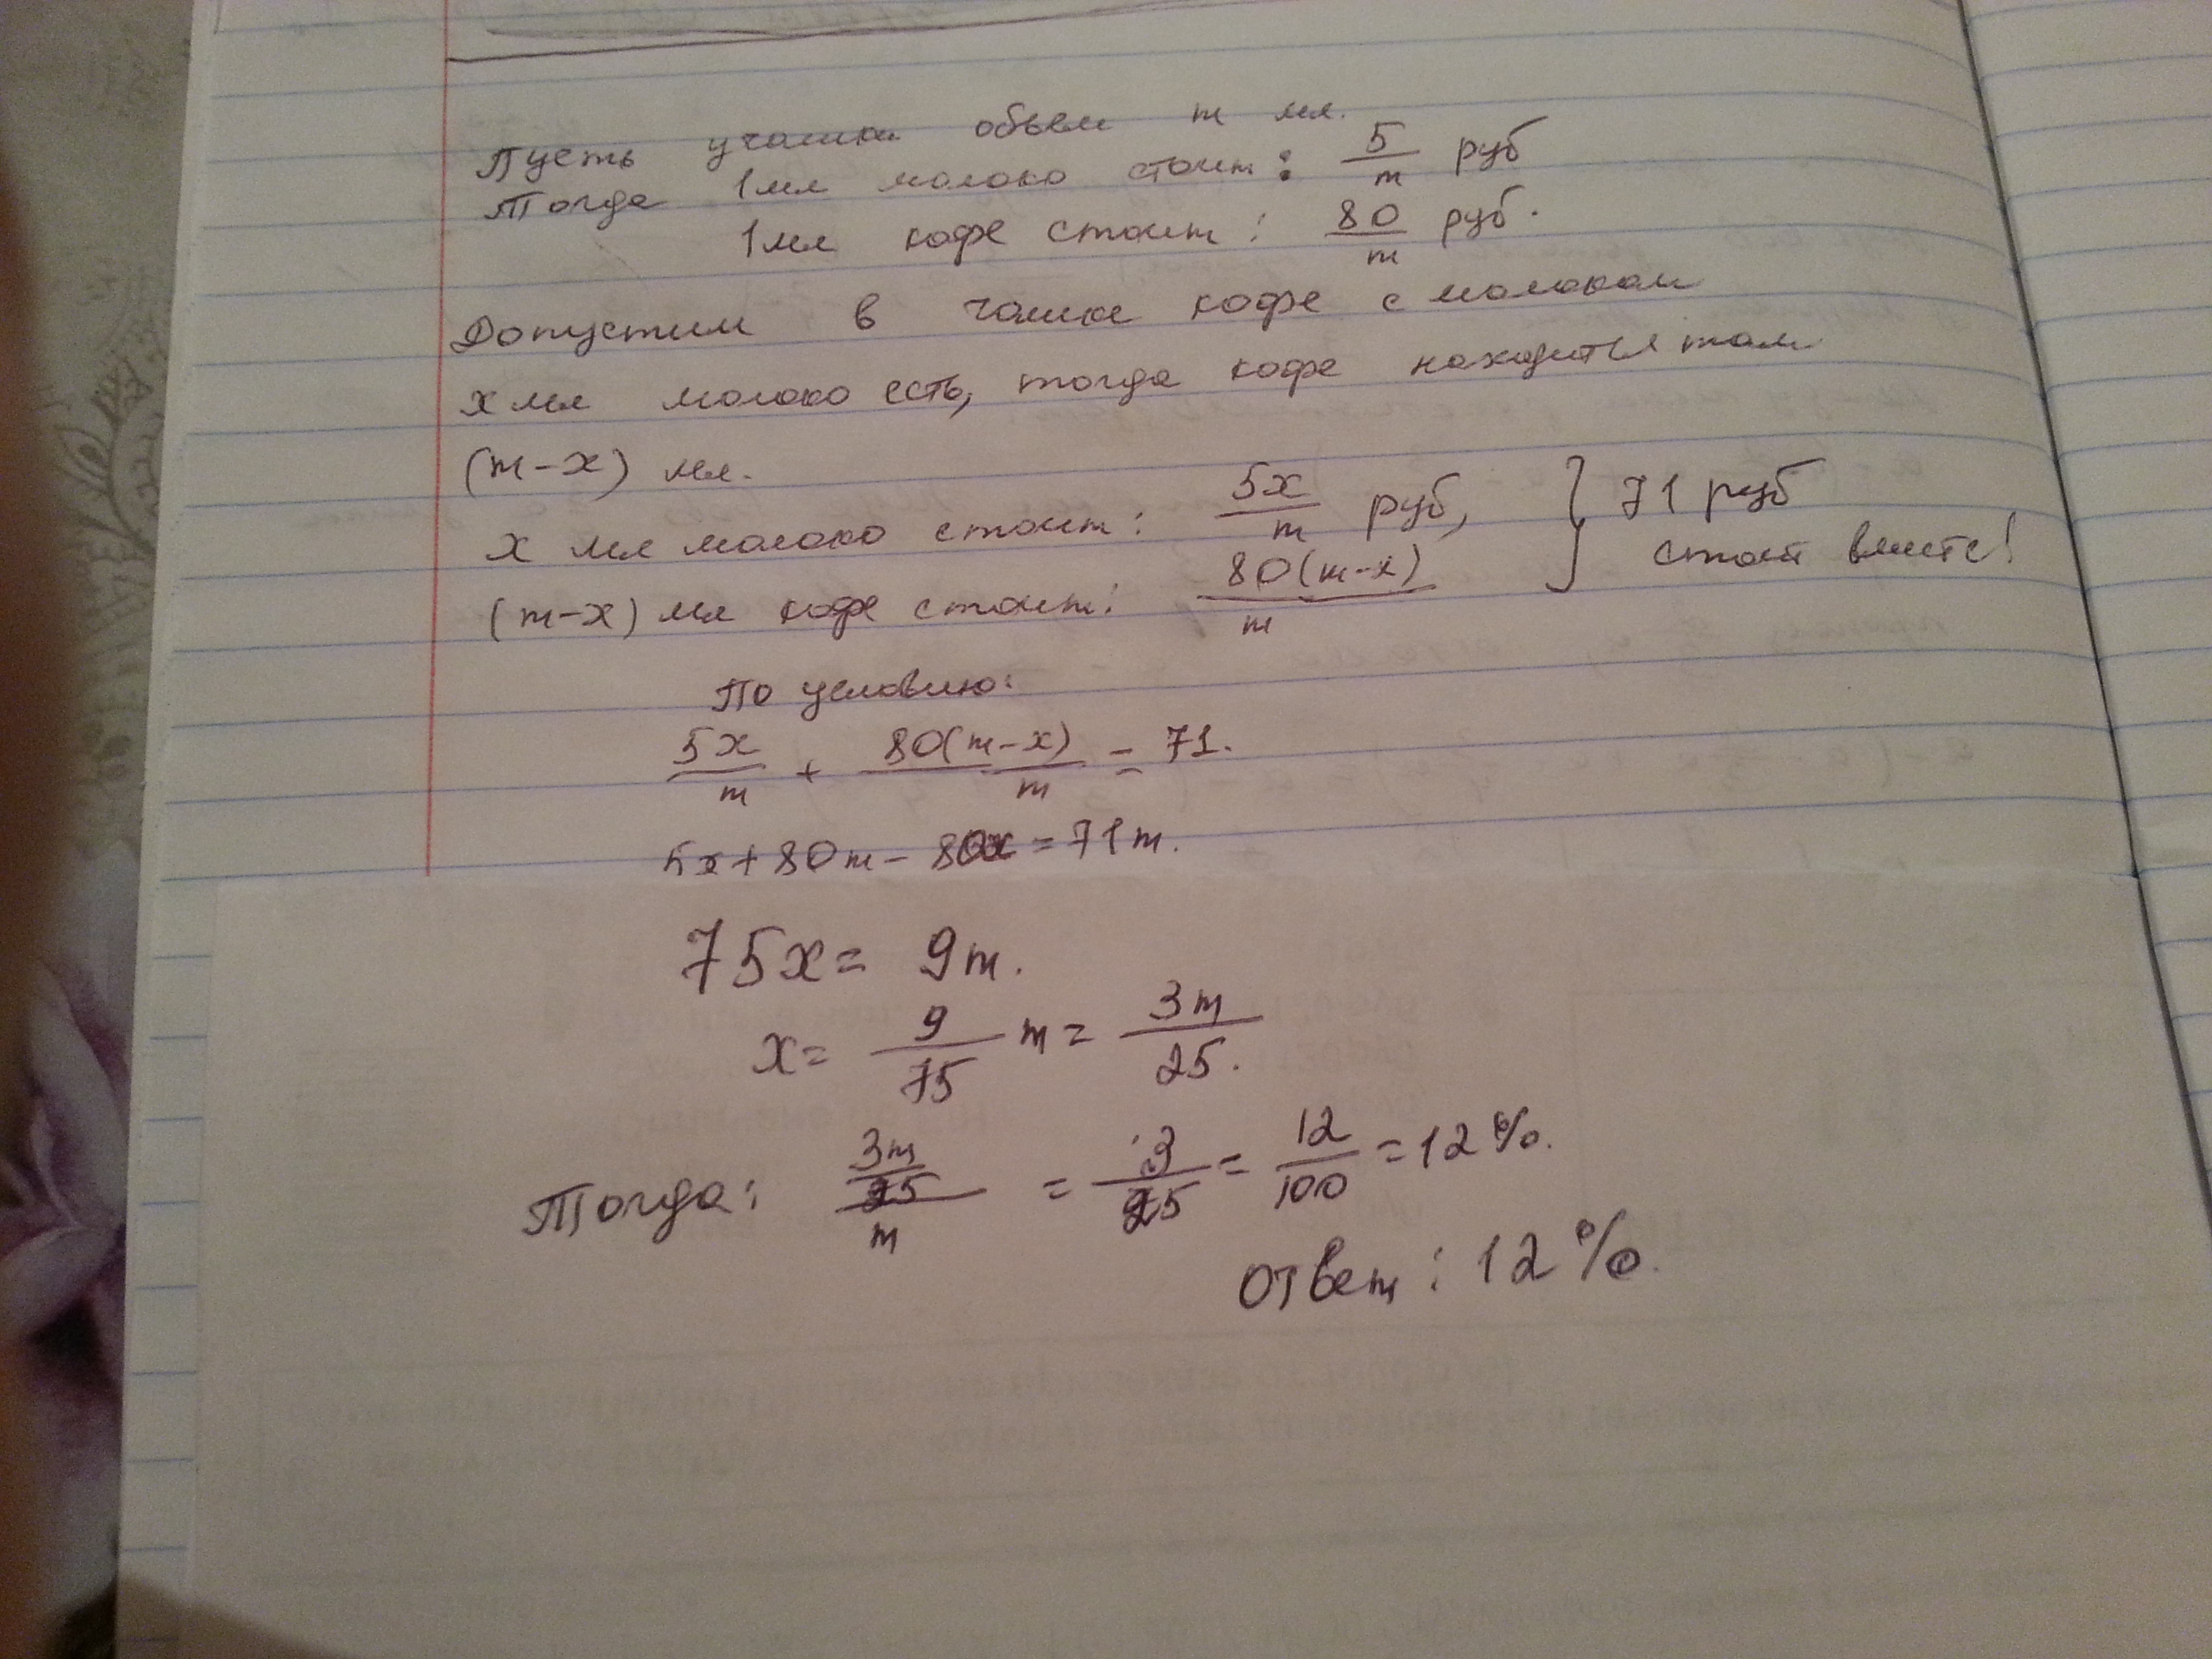 Пусть у чашки объем m мл.
Тогда 1мл молоко стоит: 5/m руб
1мл кофе стоит: 80/m руб.
Допустим в чашке кофе с молоком
x мл молоко есть, тогда кофе находится там
(m-x) мл.
x мл молоко стоит: 5x/m руб,
(m-x) мл кофе стоит: 80(m-x)/m
} 71 руб
стоит вместе!
По условию:
5x/m + 80(m-x)/m = 71.
5x+80m-80x=71m.
75x= 9m.
x= 9/75 m= 3m/25.
Тогда: (3m/25)/m = 3/25 = 12/100 = 12%.
Ответ: 12%.